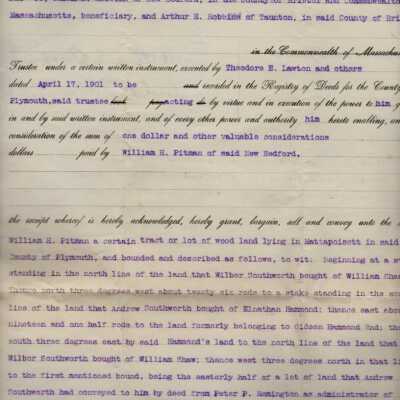 Massachusetts, beneficiary, and Arthur E. of Taunton, in said County of
in the Commonwealth of
Trustee under a certain written instrument, executed by Theodore E. Lawton and others
dated April 17, 1901 to be and recorded in the Registry of Deeds for the
Plymouth, said trustee acting by virtue and in execution of the power to him
in and by said written instrument, and of every other power and authority him hereto enabling,
consideration of the sum of one dollar and other valuable considerations
dollars paid by William H. Pitman of said New Bedford,
the receipt whereof is hereby acknowledged, hereby grant, bargain, sell and convey unto the
William H. Pitman a certain tract or lot of wood land lying in Mattapoisett in said
County of Plymouth, and bounded and described as follows, to wit. Beginning at a
standing in the north line of the land that Wilbor Southworth bought of William
Thence north three degrees west about twenty six rods to a stake standing in the
line of the land that Andrew Southworth bought of Elnathan Hammond; thence east
nineteen and one half rods to the land formerly belonging to Gideon Hammond 2nd;
south three degrees east by said Hammond's land to the north line of the land that
Wilbor Southworth bought of William Shaw; thence west three degrees north in that
to the first mentioned bound, being the easterly half of a lot of land that Andrew
Southworth had conveyed to him by deed from Peter P. Remington as administrator of